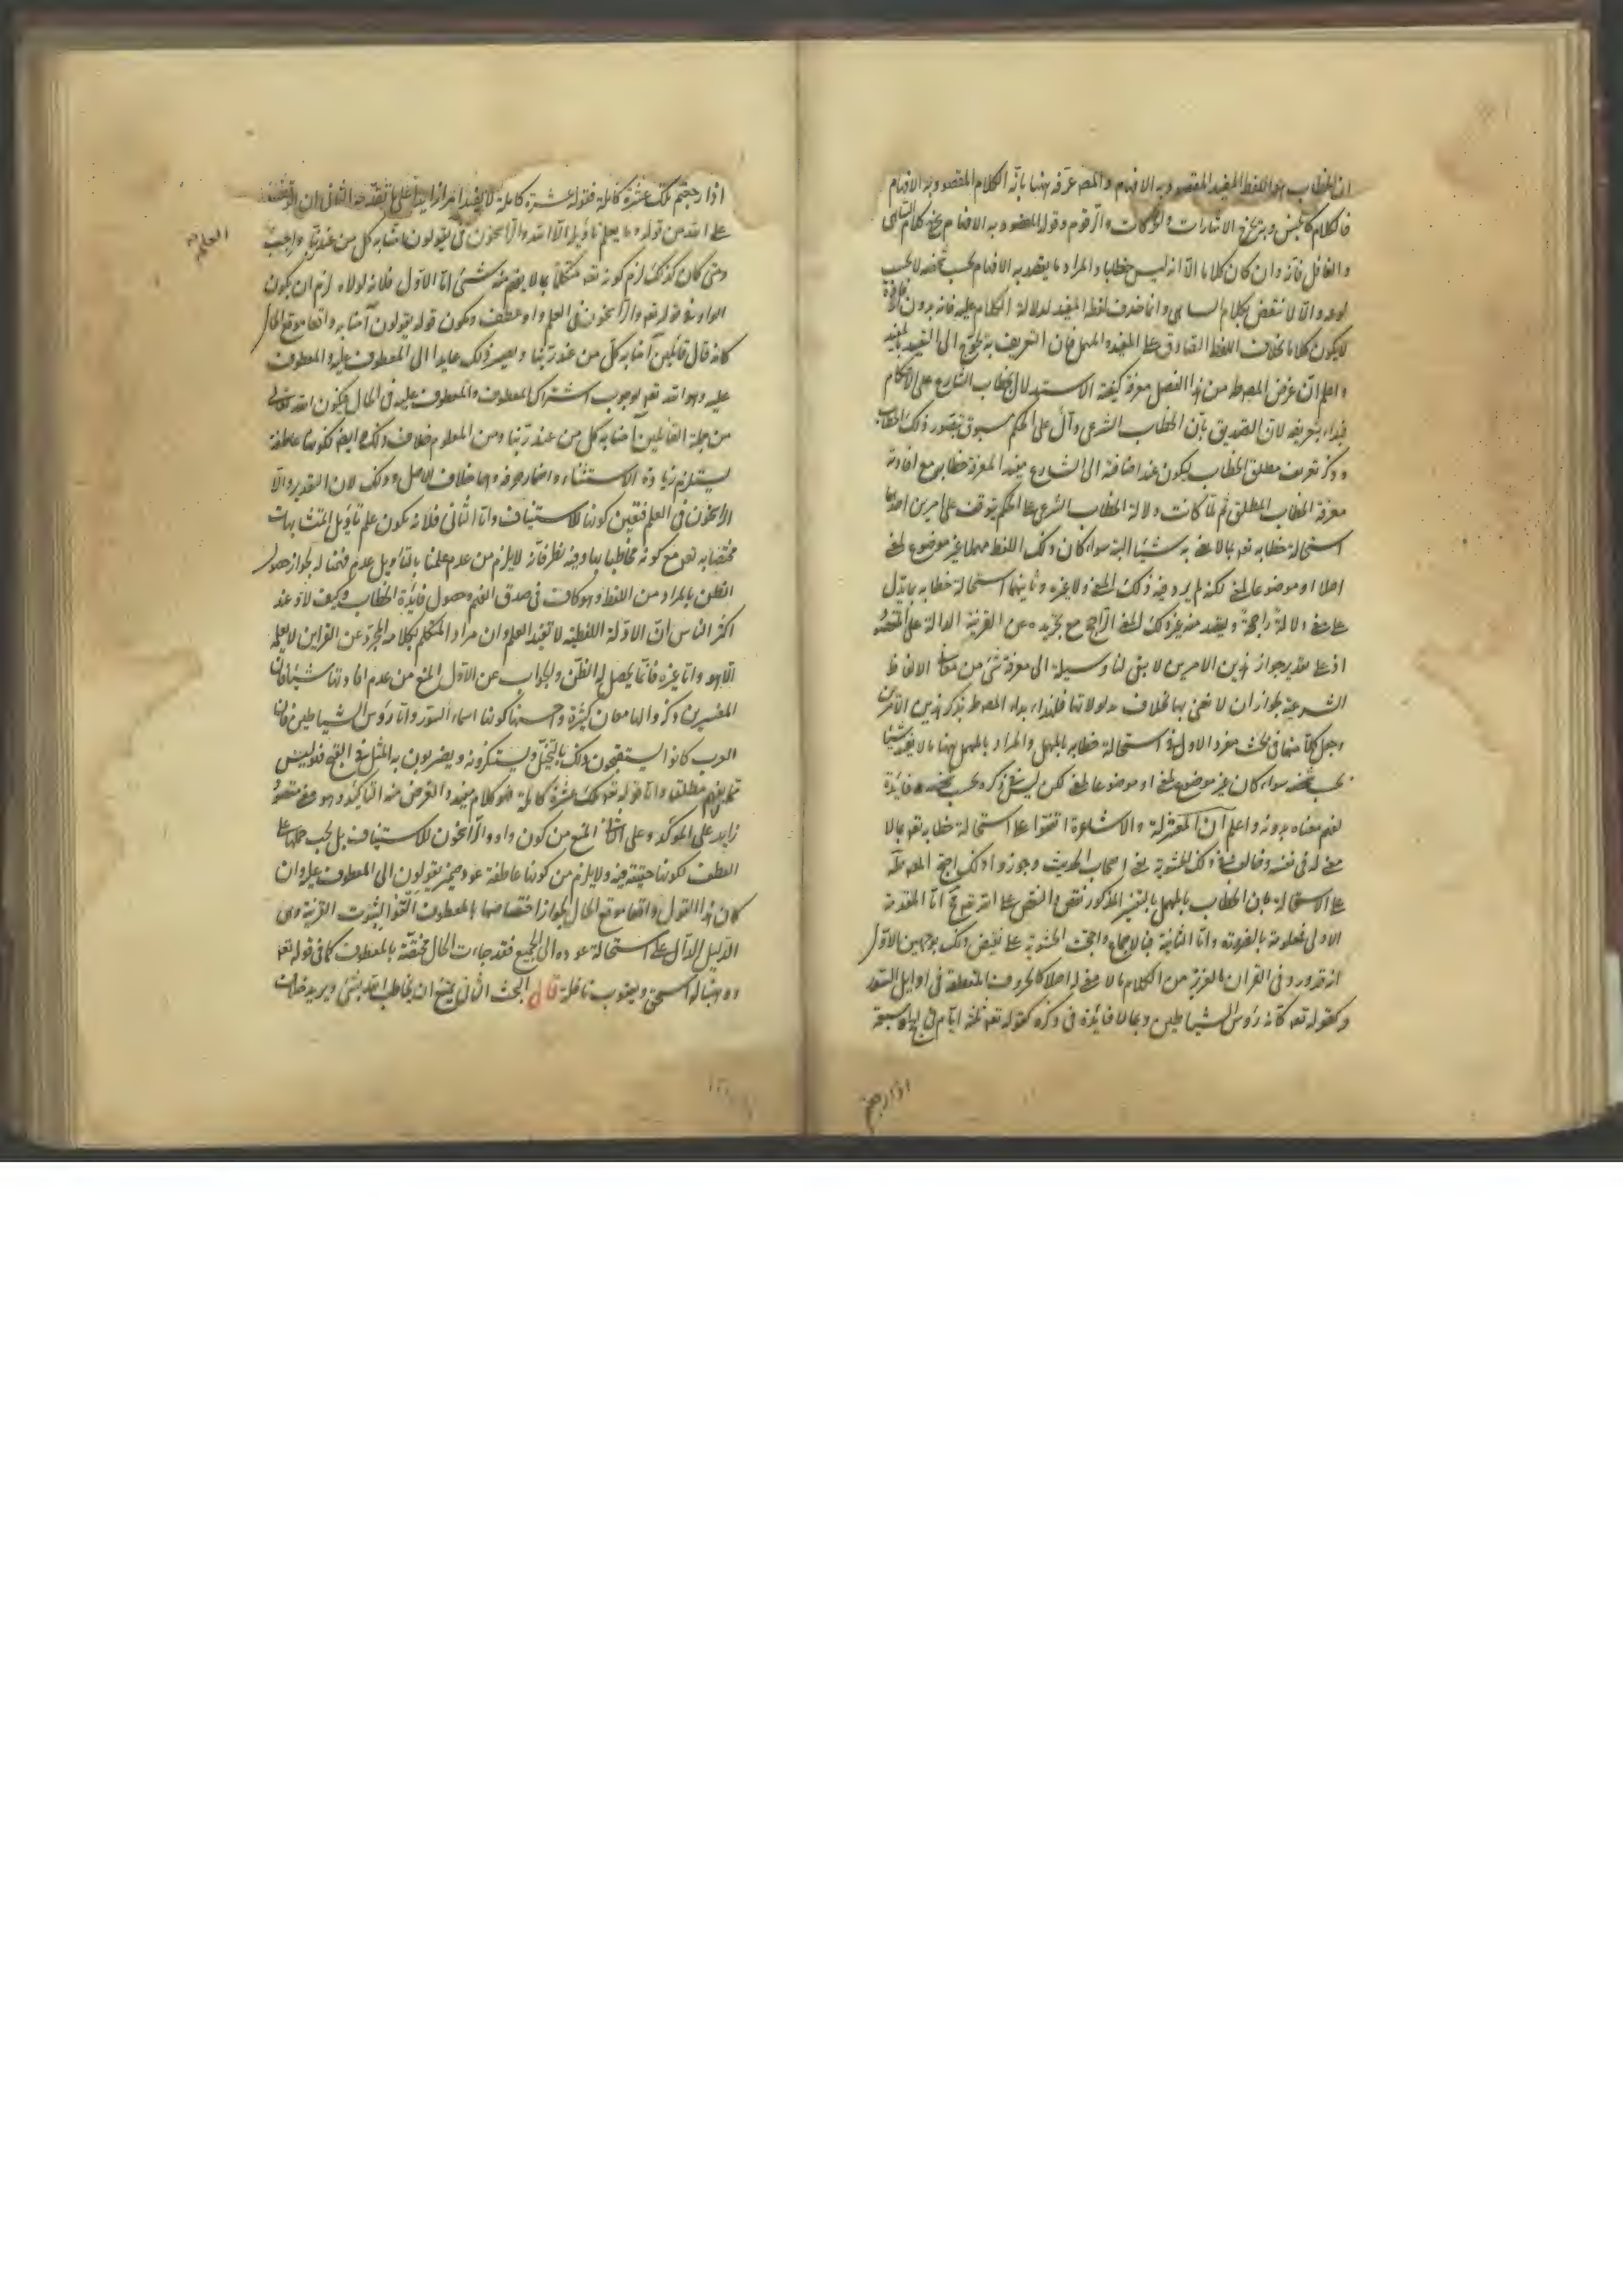 ان الخطاب هو اللفظ المفيد المقصود به الافهام والمص عرفه ههنا بانه الكلام المقصود به الافهام
فالكلام كالجنس وبه يخرج الاشارات والحركات والرقوم وقوله المقصود به الافهام يخرج كلام الساهى
والغافل فانه وان كان كلاما الا انه ليس خطابا والمراد ما يقصد به الافهام بحسب شخصه لا بحسب
نوعه والا لانتقض بكلام الساهى وانما حذف لفظ المفيد لدلالة الكلام عليه فانه بدون الافادة
لا يكون كلاما بخلاف اللفظ الصادق على المفيد والمهمل فان التعريف به يحوج الى التقييد بالمفيد
واعلم ان غرض المص ط من هذا الفصل معرفة كيفية الاستدلال بخطاب الشارع على الاحكام
فبداء بتعريفه لان التصديق بان الخطاب الشرعى دال على الحكم مسبوق بتصور ذلك الخطاب
وذكر تعريف مطلق الخطاب ليكون عند اضافته الى الشارع مفيدا لمعرفة خطابه مع افادته
معرفة الخطاب المطلق ثم لما كانت دلالة الخطاب الشرعى على الحكم يتوقف على امرين احدهما
استحالة خطابه تعه بما لا يعنى به شيئا البتة سواء كان ذلك اللفظ مهملا غير موضوع لمعنى
اصلا او موضوعا لمعنى لكنه لم يرد فيه ذلك المعنى ولا غيره وثانيهما استحالة خطابه بما يدل
على معنى دلالة راجحة ويقصد منه غير ذلك المعنى الراجح مع تجريده عن القرينة الدالة على المقصود
اذ على تقدير جواز هذين الامرين لا يبقى لنا وسيلة الى معرفة شئ من معانى الالفاظ
الشرعية لجواز ان لا يعنى بها خلاف مدلولاتها فلهذا بداء المص ط بذكر هذين الامرين
وجعل كلا منهما فى بحث مفرد الاول فى استحالة خطابه بالمهمل والمراد بالمهمل ههنا ما لا يفيد شيئا
بحسب شخصه سواء كان غير موضوع لمعنى او موضوعا لمعنى لكن ليس فى ذكره بحسب شخصه فائدة
لفهم معناه بدونه واعلم ان المعتزلة والاشاعرة اتفقوا على استحالة خطابه تعه بما لا
معنى له فى نفسه وخالف فى ذلك الحشوية يعنى اصحاب الحديث وجوزوا ذلك احتج المص ط
على الاستحالة بان الخطاب بالمهمل بالتفسير المذكور نقص والنقص على الله تعه مح اما المقدمة
الاولى فمعلومة بالضرورة واما الثانية فبالاجماع واحتجت الحشوية على نقيض ذلك بوجهين الاول
انه قد ورد فى القران العزيز من الكلام ما لا معنى له اصلا كالحروف المقطعة فى اوايل السور
وكقوله تعه كانه رؤس الشياطين وبما لا فائدة فى ذكره كقوله تعه ثلثة ايام فى الحج وسبعة
اذا رجعتم
اذا رجعتم تلك عشرة كاملة فقوله عشرة كاملة لا يفيد امرا زايدا على ما تقدمه الثانى ان الوقف
على الله من قوله وما يعلم تاويله الا الله والراسخون فى يقولون امنا به كل من عند ربنا واجب
العلم صح
ومتى كان كذلك لزم كونه تعه متكلما بما لا يفهم منه شئ اما الاول فلانه لولاه لزم ان يكون
الواو فى قوله تعه والراسخون فى العلم واو عطف ويكون قوله يقولون آمنا به واقعا موقع الحال
كانه قال قائلين آمنا به كل من عند ربنا ويصير ذلك عايدا الى المعطوف عليه والمعطوف
عليه وهو الله تعه لوجوب اشتراك المعطوف والمعطوف عليه فى الحال فيكون الله تعالى
من جملة القائلين آمنا به كل من عند ربنا ومن المعلوم خلاف ذلك وايضا كونها عاطفة
يستلزم زيادة الاستثناء واضمار حرفه وهما خلاف الاصل وذلك لان التقدير والا
الراسخون فى العلم فتعين كونها للاستيناف واما الثانى فلانه يكون علم تاويل المتشابهات
مختصا به تعه مع كونه مخاطبا بها وفيه نظر فانه لا يلزم من عدم علمنا بالتاويل عدم فهمنا له لجواز حصول
الظن بالمراد من اللفظ وهو كاف فى صدق الفهم وحصول فائدة الخطاب وكيف لا وعند
اكثر الناس ان الادلة اللفظية لا تفيد العلم وان مراد المتكلم بكلامه المجرد عن القراين لا يعلمه
الا هو واما غيره فانما يحصل له الظن والجواب عن الاول المنع من عدم افادتها شيئا فان
المفسرين ذكروا لها معان كثيرة واحسنها كونها اسماء السور واما رؤس الشياطين فان
العرب كانوا يستقبحون ذلك بالتخيل ويستنكرونه ويضربون به المثل فى القبح فلو ليس
بمهمل مطلقا واما قوله تعه تلك عشرة كاملة فهو كلام مفيد والغرض منه التاكيد وهو معنى مقصود
زايد على المؤكد وعلى الثانى المنع من كون واو والراسخون للاستيناف بل يجب حملها على
العطف لكونها حقيقة فيه ولا يلزم من كونها عاطفة عود ضمير يقولون الى المعطوف عليه وان
كان هذا القول واقعا موقع الحال لجواز اختصاصها بالمعطوف لثبوت القرينة وهى
الدليل الدال على استحالة عوده الى الجميع فقد جاءت الحال مختصة بالمعطوف كما فى قوله تعه
ووهبنا له اسحق ويعقوب نافلة قال البحث الثانى يمتنع ان يخاطب الله بشئ ويريد خلاف